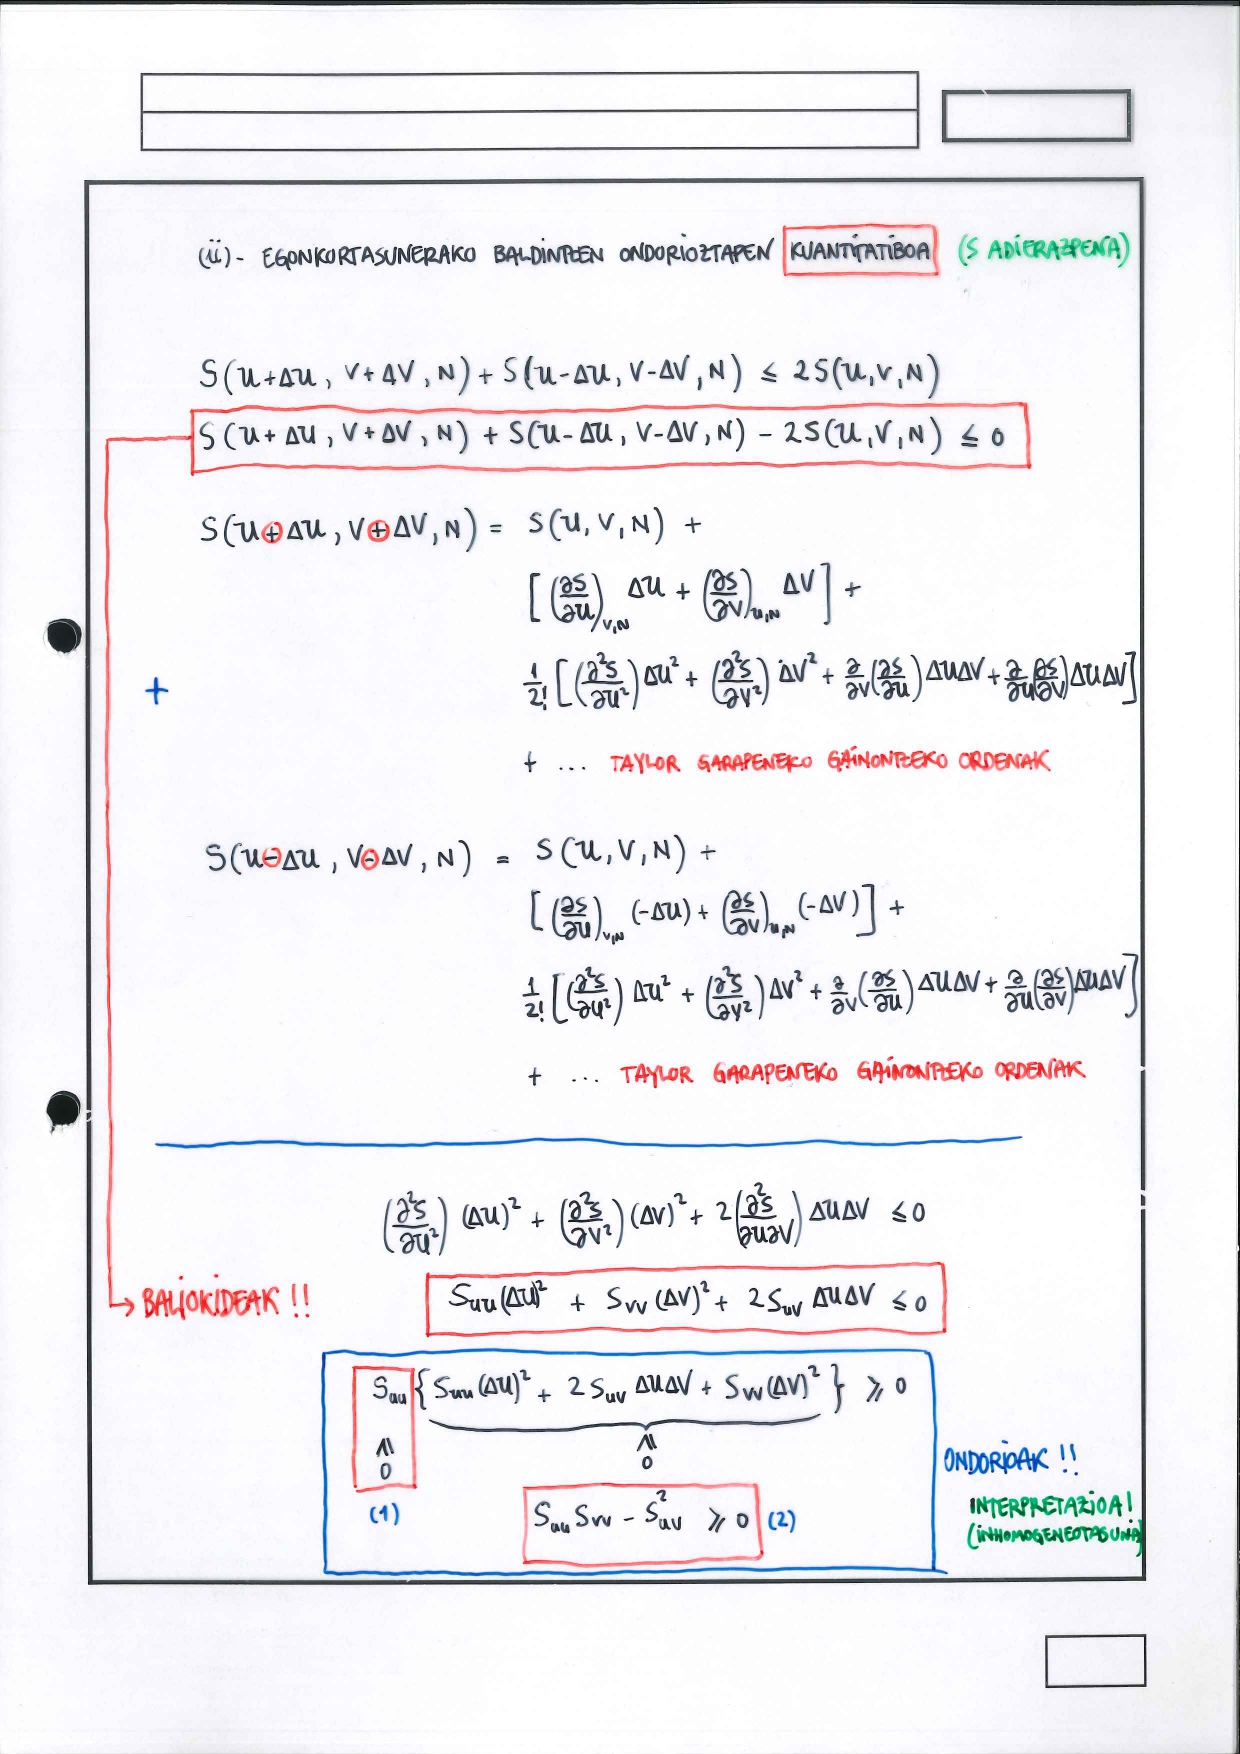 (ii)- EGONKORTASUNERAKO BALDINTZEN ONDORIOZTAPEN KUANTITATIBOA (S ADIERAZPENA)
S(U+ΔU, V+ΔV, N) + S(U-ΔU, V-ΔV, N) ≤ 2S(U,V,N)
S(U+ΔU, V+ΔV, N) + S(U-ΔU, V-ΔV, N) - 2S(U,V,N) ≤ 0
S(U⊕ΔU, V⊕ΔV, N) = S(U,V,N) +
[(∂S/∂U)_{V,N} ΔU + (∂S/∂V)_{U,N} ΔV] +
+ 1/2! [(∂²S/∂U²) ΔU² + (∂²S/∂V²) ΔV² + ∂/∂V(∂S/∂U) ΔUΔV + ∂/∂U(∂S/∂V) ΔUΔV]
+ ... TAYLOR GARAPENEKO GAINONTZEKO ORDENAK
S(U⊖ΔU, V⊖ΔV, N) = S(U,V,N) +
[(∂S/∂U)_{V,N} (-ΔU) + (∂S/∂V)_{U,N} (-ΔV)] +
1/2! [(∂²S/∂U²) ΔU² + (∂²S/∂V²) ΔV² + ∂/∂V(∂S/∂U) ΔUΔV + ∂/∂U(∂S/∂V) ΔUΔV]
+ ... TAYLOR GARAPENEKO GAINONTZEKO ORDENAK
(∂²S/∂U²) (ΔU)² + (∂²S/∂V²) (ΔV)² + 2(∂²S/∂U∂V) ΔUΔV ≤ 0
→ BALIOKIDEAK !! S_{UU}(ΔU)² + S_{VV}(ΔV)² + 2S_{UV} ΔUΔV ≤ 0
S_{UU} {S_{UU}(ΔU)² + 2S_{UV} ΔUΔV + S_{VV}(ΔV)²} ≥ 0
≤ ≤
0 0
ONDORIOAK !!
(1) S_{UU}S_{VV} - S²_{UV} ≥ 0 (2)
INTERPRETAZIOA!
(INHOMOGENEOTASUNA)